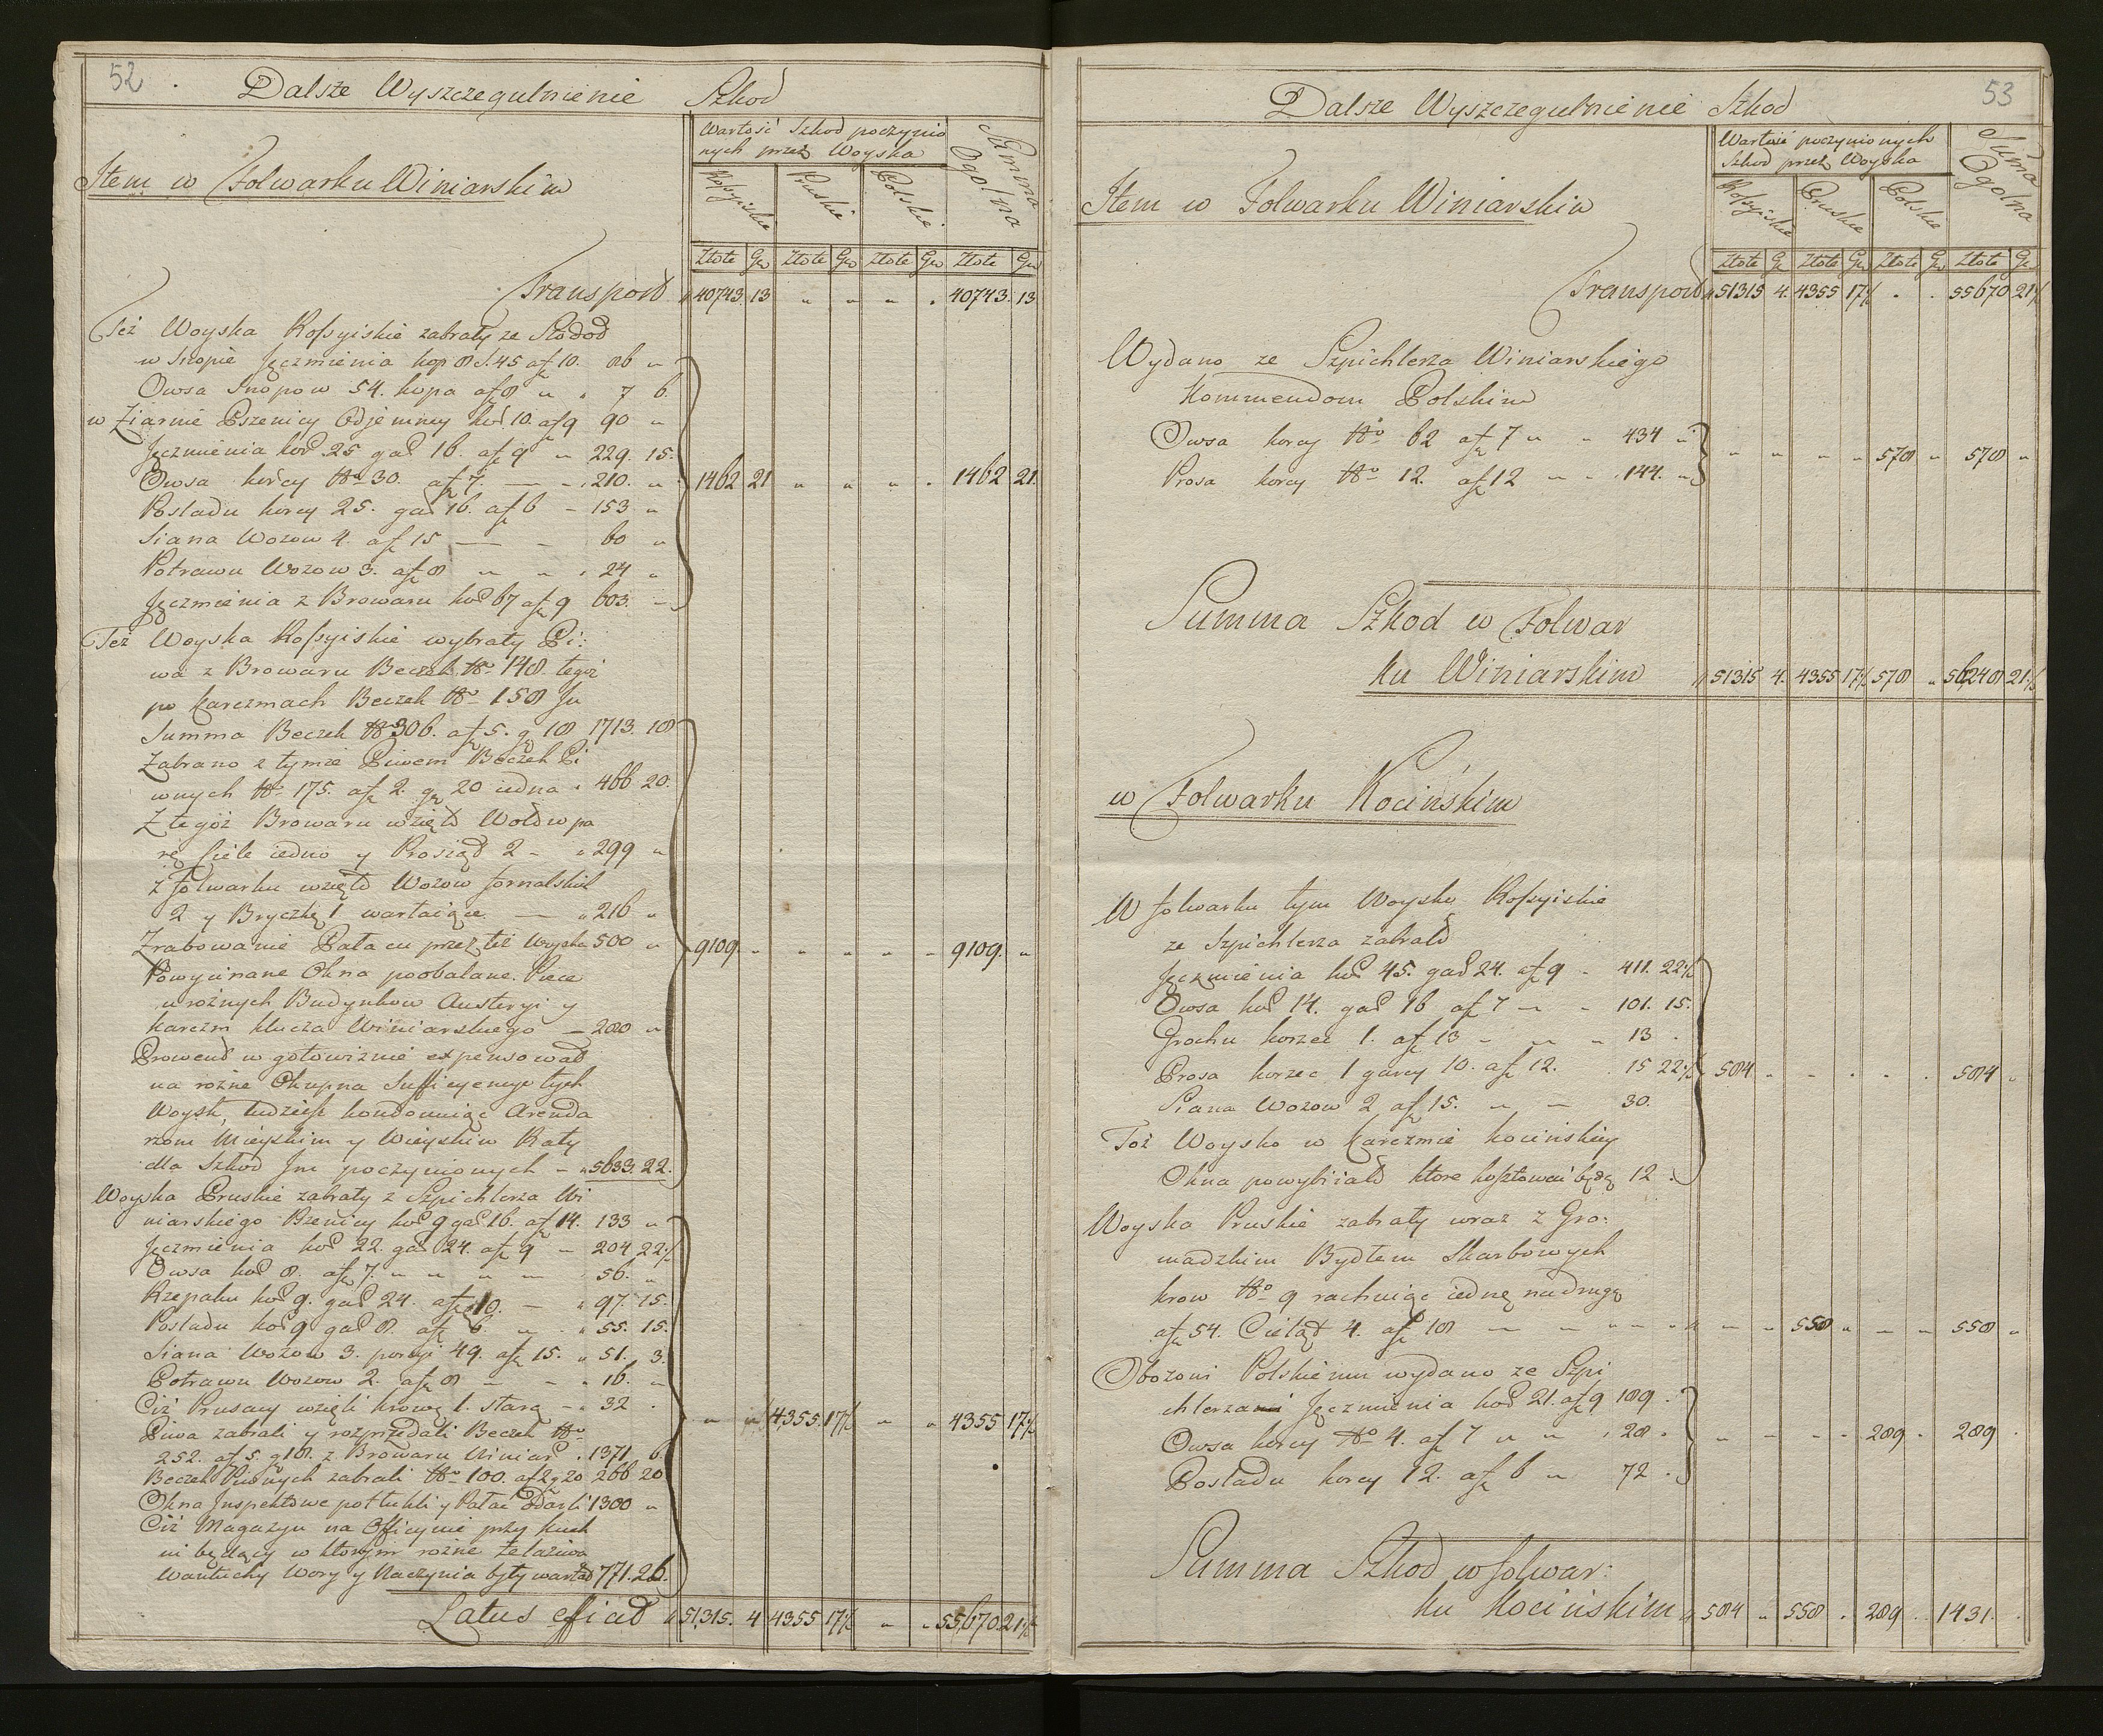 52
Dalsze Wyszczegulnienie Szkod
Wartość Szkod poczynio
nych przez Woyska
Summa
Ogolna
Item w Folwarku Winiarskim
Rossyiskie Pruskie Polskie
Złote Gr Złote Gr Złote Gr Złote Gr
Transport 40743. 13 „ „ „ „ 40743. 13
Też Woyska Rossyiskie zabrały ze Stodoł
w Snopie Jęczmienia kop 8 S. 45 af 10. 86 „
Owsa Snopow 54. kopa af 8 „ „ 7 6.
w Ziarnie Pszenicy Odjemney kor 10. af 9 90 „
Jęczmienia kor 25 gar 16. af 9 „ 229. 15.
Owsa korcy No 30. af 7. — „ 210. „ 1462 21 „ „ „ „ 1462 21.
Posladu korcy 25. gar 16. af 6 – 153 „
Siana Wozow 4. af 15 — – 60 „
Potrawu Wozow 3. af 8 „ „ „ 24 „
Jęczmienia z Browaru kor 67 af 9 603. –
Też Woyska Rossyiskie wybrały Pi:
wa z Browaru Beczek No 148 tegoż
po karczmach Beczek No 158 Ju
Summa Beczek No 306. af 5. gr 18 1713. 18
Zabrano z tymże Piwem Beczek Pi
wnych No 175. af 2. gr 20 iedna „ 466 20.
Z tegoż Browaru wzięto Wołow pa
rę Ciele iedno y Prosiąt 2 – „ 299 „
z folwarku wzięto Wozow fornalskich
2 y Bryczkę 1 wartaiące — „ 216 „
Zrabowanie Pałacu przez też Woyska 500 „ 9109. – „ „ „ – 9109. „
Powycinane Okna poobalane Piece
w rożnych Budynkow Austeryi y
karczm klucza Winiarskiego – 280 „
Prowent w gotowiznie expensował
na rożne Okupna Sufficyencye tych
Woysk, tudzież kondonuiąc Arenda
rzom Mieyskim y Wieyskim Raty
dla Szkod Jm poczynionych – „ 5633. 22.
Woyska Pruskie zabrały z Szpichlerza Wi
niarskiego Pzenicy kor 9 gar 16. af 14. 133 „
Jęczmienia kor 22. gar 24. af 9 – 204. 22½
Owsa kor 8. af 7. „ „ „ — 56. „
Rzepaku kor 9. gar 24. af 10. — „ 97. 15.
Posladu kor 9 gar 8. af 6 „ „ 55. 15.
Siana Wozow 3. porcyi 49. af 15. „ 51. 3.
Potrawu Wozow 2. af 8 – – „ 16. „
Ciż Prusacy wzięli krowę 1. starą – „ 32 . „ „ 4355. 17½ „ „ 4355 17½
Piwa zabrali y rozprzedali Beczek No
252. af 5. g 18. z Browaru Winiar. „ 1371 6.
Beczek Piwnych zabrali No 100. af 2 g 20 266 20
Okna Inspektowe potłukli y Pałac odarli 1300 „
Ciż Magazyn na Officynie przy kuch
ni będący w ktorym rożne żelaziwa
Wantuchy Wory y Naczynia były wartał 771. 26.
Latus efficit „ 51,315. 4 4355 17½ „ „ 55,670 21½
53
Dalsze Wyszczegulnienie Szkod
Wartość poczynionych
Szkod przez Woyska
Summa
Ogolna
Item w Folwarku Winiarskim
Rossyiskie Pruskie Polskie
Złote Gr Złote Gr Złote Gr Złote Gr
Transport „ 51315 4. 4355 17½ . . 55670 21½
Wydano ze Szpichlerza Winiarskiego
Kommendom Polskim
Owsa korcy No 62 af 7 „ „ 434 „
Prosa korcy No 12. af 12 „ „ 144. „ „ „ „ „ 578 „ 578 „
Summa Szkod w Folwar
ku Winiarskim „ 51315 4. 4355 17½ 578 „ 56,248 21½
w Folwarku Kocińskim
W folwarku tym Woysko Rossyiskie
ze Szpichlerza zabrało
Jęczmienia kor 45. gar 24. af 9 – 411. 22½
Owsa kor 14. gar 16 af 7 – – 101. 15.
Grochu korzec 1. af 13 – „ „ 13 .
Prosa korzec 1 garcy 10. af 12. . 15 22½ 584 – – . . . 584 .
Siana Wozow 2 af 15. „ — 30.
Toż Woysko w karczmie kocińskiey
Okna powybiiało ktore kosztować będą 12 .
Woyska Pruskie zabrały wraz z Gro:
madzkim Bydłem Skarbowych
krow No 9 rachuiąc iednę na drugą
af 54. Cieląt 4. af 18 — – „ „ „ – – 558 „ – – 558 „
Obozowi Polskiemu wydano ze Szpi
chlerza Jęczmienia kor 21. af 9 189 .
Owsa korcy No 4. af 7 „ „ . 28 . „ – – – 289 . 289 .
Posladu korcy 12. af 6 „ 72 .
Summa Szkod w folwar:
ku Kocińskim „ 584 „ 558 . 289 . 1431. .